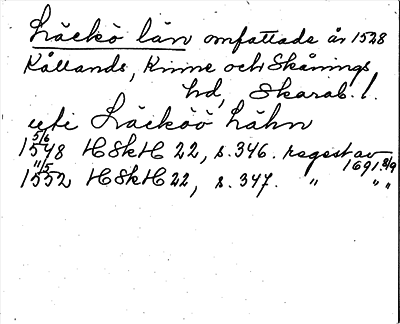 Läckö län omfattade år 1528
Kållands, Kinne och Skånings
hd, Skarab. l.
uti Läcköö Lähn
1548 5/6 HSkH 22, s. 346. regest av 1691 2/9
1552 11/5 HSkH 22, s. 347. " " "